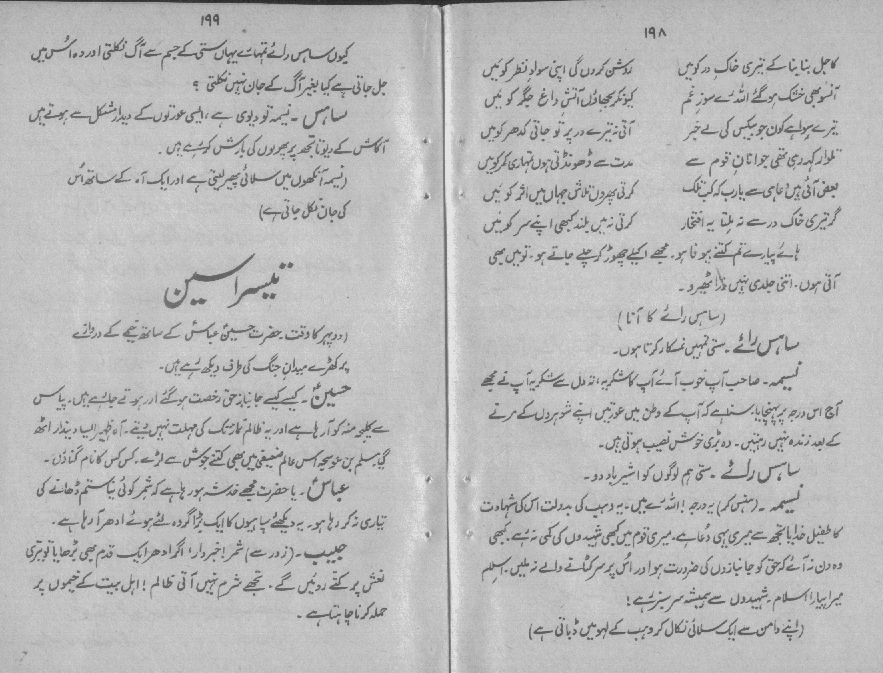 ۱۹۸
کاجل بنا بنا کے تیری خاکِ در کو میں روشن کروں گی اپنی سوادِ نظر کو میں
آنسو بھی خشک ہو گئے اللہ رے سوزِ غم کیونکر بجھاؤں آتشِ داغِ جگر کو میں
تیرے سوا ہے کون جو بیکس کی لے خبر آتی نہ تیرے در پر تو جاتی کدھر کو میں
تلوار کہہ رہی تھی جوانانِ قوم سے مدت سے ڈھونڈتی ہوں تمہاری کمر کو میں
آئی ہیں دعا ہی سے یارب کہ کب تلک کرتی پھروں تلاش جہاں میں اثر کو میں
گر تیری خاک در سے نہ ملتا یہ افتخار کرتی نہ یوں بلند کبھی اپنے سر کو میں
ہائے پیارے تم کتنے بے وفا ہو۔ مجھے اکیلے چھوڑ کر چلے جاتے ہو۔ تو میں بھی
آتی ہوں۔ اتنی جلدی نہیں ذرا ٹھیرو۔
(ساہس رائے کا آنا)
ساہس رائے۔ ستی تمہیں نمسکار کرتا ہوں۔
نسیمہ۔ صاحب آپ خوب آئے آپ کا شکریہ، تہ دل سے شکریہ آپ نے مجھے
آج اس درجہ پر پہنچایا۔ سنا ہے کہ آپ کے وطن میں عورتیں اپنے شوہروں کے مرنے
کے بعد زندہ نہیں رہتیں۔ وہ بڑی خوش نصیب ہوتی ہیں۔
ساہس رائے۔ ستی ہم لوگوں کو اشیرباد دو۔
نسیمہ۔ (ہنس کر) یہ درجہ! اللہ رے میں۔ یہ وہب کی بدولت اس کی شہادت
کا طفیل خدایا تجھ سے میری یہی دعا ہے۔ میری قوم میں کبھی شہیدوں کی کمی نہ رہے۔ کبھی
وہ دن نہ آئے کہ حق کو جانبازوں کی ضرورت ہو اور اس پر سر کٹانے والے نہ ملیں۔ اسلام
میرا پیارا اسلام۔ شہیدوں سے ہمیشہ سرسبز رہے!
(اپنے دامن سے ایک سلائی نکال کر وہب کے لہو میں ڈباتی ہے)
۱۹۹
کیوں ساہس رائے تمہارے یہاں ستی کے جسم سے آگ نکلتی اور وہ اس میں
جل جاتی ہے کیا بغیر آگ کے جان نہیں نکلتی ؟
ساہس۔ نسیمہ تو دیوی ہے، ایسی عورتوں کے دیدار مشکل سے ہوتے ہیں
آکاش کے دیوتا تجھ پر پھولوں کی بارش کر رہے ہیں۔
(نسیمہ آنکھوں میں سلائی پھیر لیتی ہے اور ایک آہ کے ساتھ اس
کی جان نکل جاتی ہے)
تیسرا سین
(دوپہر کا وقت۔ حضرت حسینؑ عباسؑ کے ساتھ خیمے کے دروازے
پر کھڑے میدان جنگ کی طرف دیکھ رہے ہیں۔
حسینؑ۔ کیسے کیسے جانباز حق رخصت ہو گئے اور ہوتے جا رہے ہیں۔ پیاس
سے کلیجہ منہ کو آ رہا ہے اور یہ ظالم نماز تک کی مہلت نہیں دیتے۔ آہ ظہیر ایسا دیندار اٹھ
گیا۔ مسلم بن عوسجہ اس عالم ضعیفی میں بھی کتنے جوش سے لڑے۔ کس کس کا نام گناؤں۔
عباسؑ۔ یا حضرت مجھے خدشہ ہو رہا ہے کہ شمر کوئی نیا ستم ڈھانے کی
تیاری نہ کر رہا ہو۔ یہ دیکھئے سپاہیوں کا ایک بڑا گروہ لئے ہوئے ادھر آ رہا ہے۔
حبیب۔ (زور سے) شمر! خبردار، اگر ادھر ایک قدم بھی بڑھایا تو تیری
نعش پر کتے روئیں گے۔ تجھے شرم نہیں آتی ظالم! اہل بیت کے خیموں پر
حملہ کرنا چاہتا ہے۔